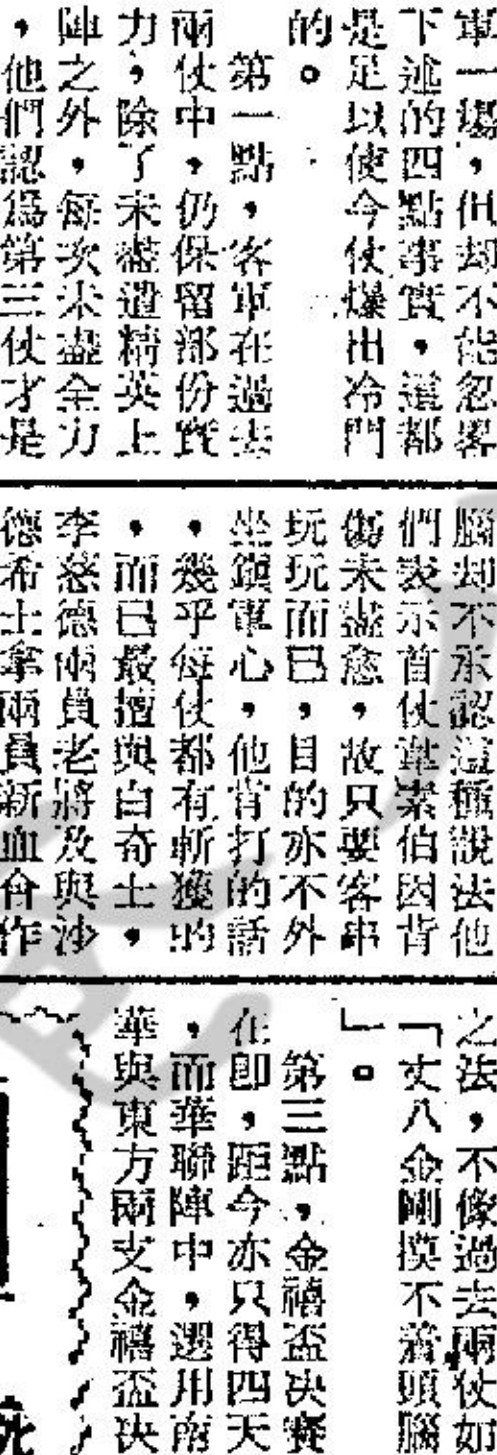 軍一場，但却不能忽畧
下述的四點事實，這都
是足以使今仗爆出冷門
的。
第一點，客軍在過去
兩仗中，仍保留部份實
力，除了未盡遣精英上
陣之外，每次未盡全力
，他們認爲第三仗才是
腦却不承認這種說法他
們表示首仗韋崇伯因背
傷未盡愈，故只要客串
玩玩而已，目的亦不外
坐鎭軍心，他肯打的話
，幾乎每仗都有斬獲的
，而已最擅與白奇士，
李慈德兩員老將及與沙
德希士拿兩員新血合作
之法，不像過去兩仗如
「丈八金剛摸不着頭腦
」。
第三點，金禧盃决賽
在即，距今亦只得四天
，而華聯陣中，選用南
華與東方兩支金禧盃决